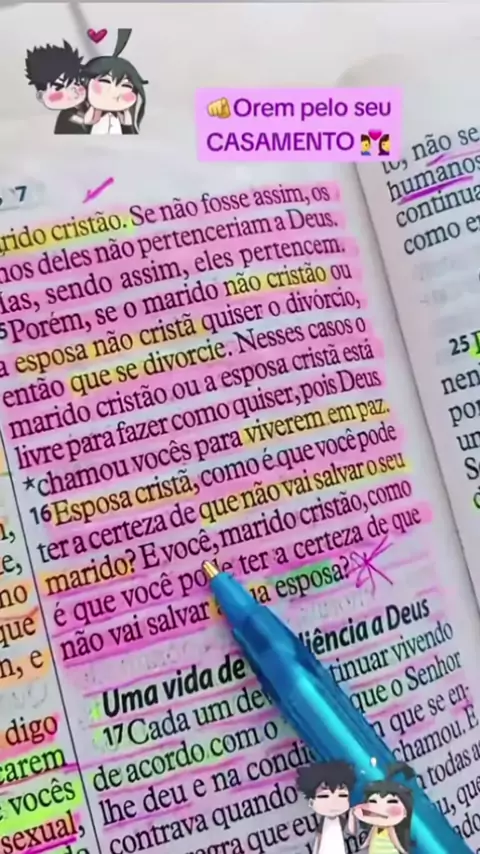 👊Orem pelo seu
CASAMENTO 💏
7
marido cristão. Se não fosse assim, os
deles não pertenceriam a Deus.
sendo assim, eles pertencem.
Porém, se o marido não cristão ou
a esposa não cristã quiser o divórcio,
então que se divorcie. Nesses casos o
marido cristão ou a esposa cristã está
livre para fazer como quiser, pois Deus
*chamou vocês para viverem em paz.
16Esposa cristã, como é que você pode
ter a certeza de que não vai salvar o seu
marido? E você, marido cristão, como
é que você pode ter a certeza de que
não vai salvar esposa?
Uma vida de a Deus
17Cada um vivendo
de acordo com o que o Senhor
lhe deu e na que se en-
contrava quando chamou. E
que todas
digo
vocês
sexual,
no
que
e
não se
humanos
continua
como
25